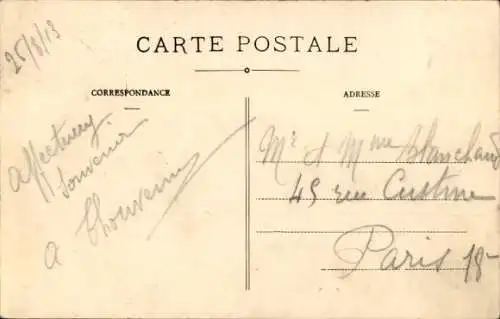 25/8/13
CARTE POSTALE
CORRESPONDANCE
ADRESSE
affectueux
souvenir
A
Mr & Mme Blanchard
45 rue Custine
Paris 18